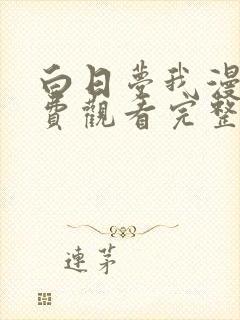 白日夢我漫
費觀看完整
連茅